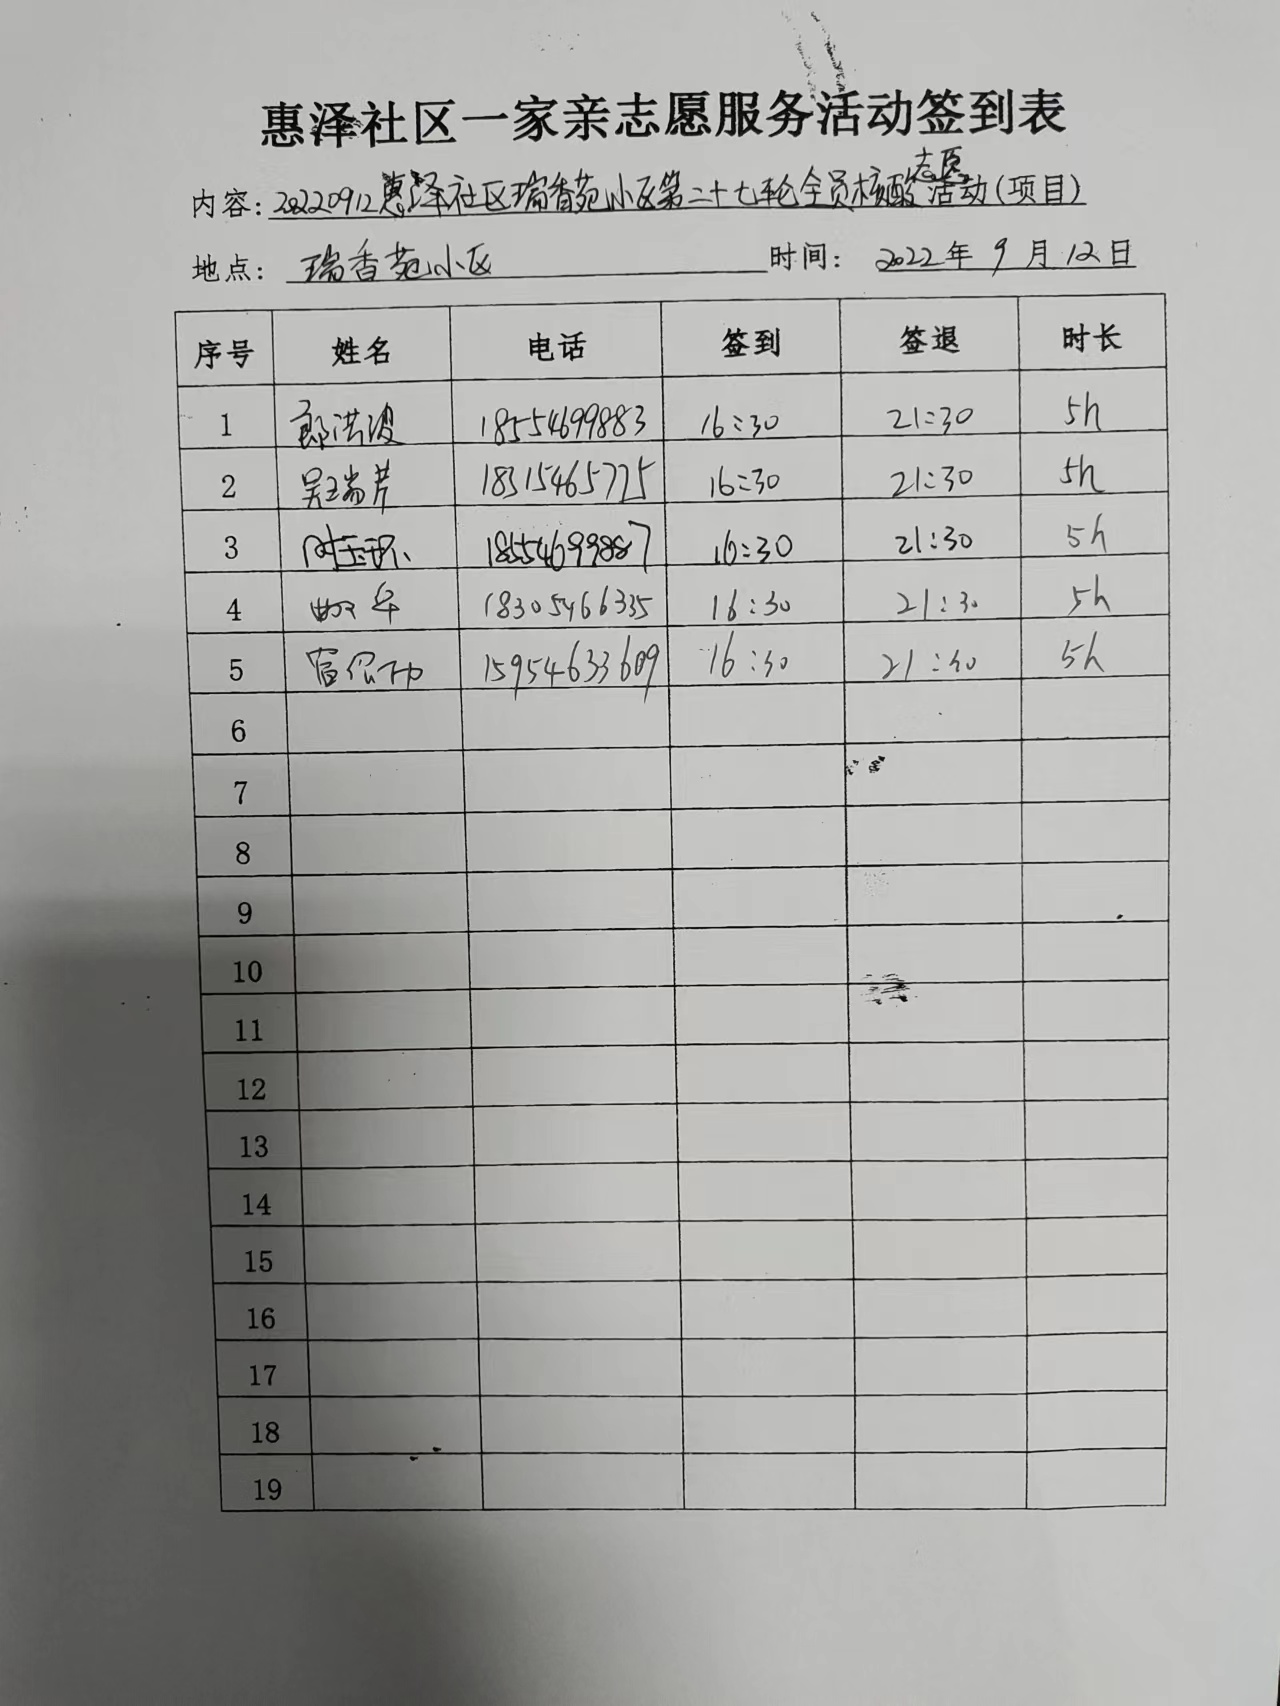 惠泽社区一家亲志愿服务活动签到表
内容: 20220912惠泽社区瑞香苑小区第二十七轮全员核酸志愿活动(项目)
地点: 瑞香苑小区 时间: 2022年9月12日
序号 姓名 电话 签到 签退 时长
1 郎洪波 18554699883 16:30 21:30 5h
2 吴瑞芹 18315465775 16:30 21:30 5h
3 18554699887 16:30 21:30 5h
4 18305466335 16:30 21:30 5h
5 15954633609 16:30 21:30 5h
6
7
8
9
10
11
12
13
14
15
16
17
18
19